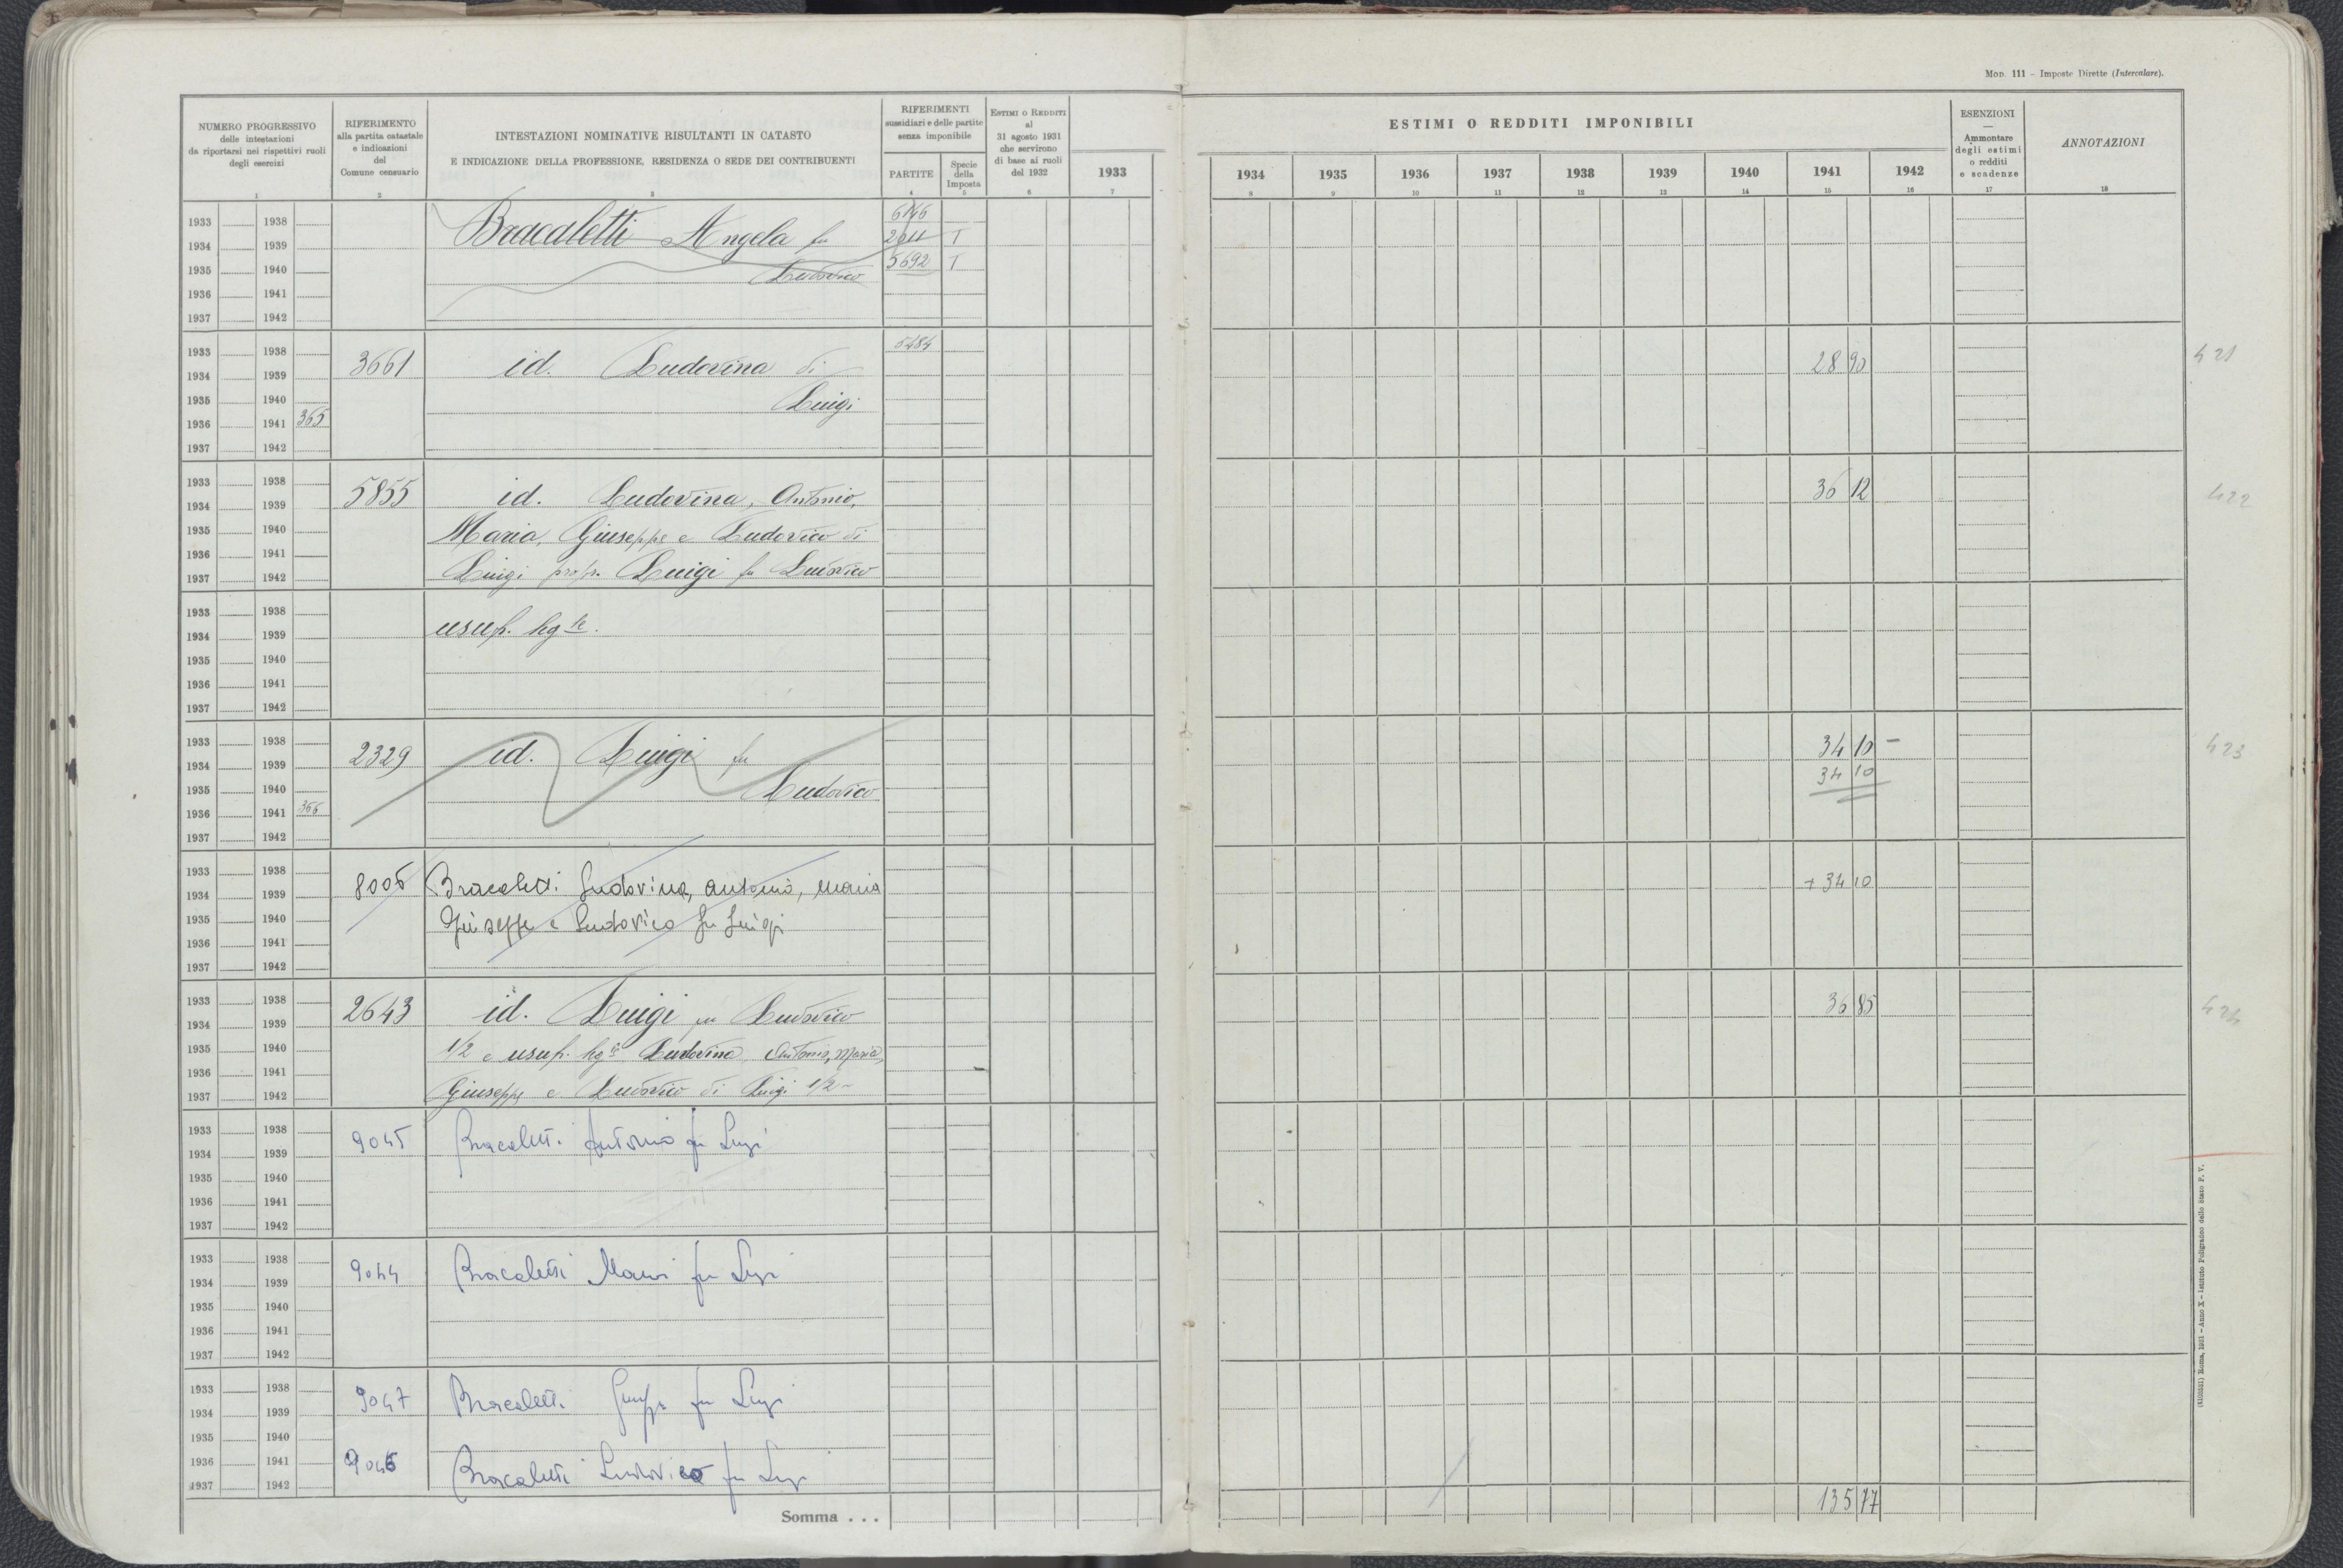 Mod. 111 – Imposte Dirette (Intercalare).
NUMERO PROGRESSIVO
delle intestazioni
da riportarsi nei rispettivi ruoli
degli esercizi
1
RIFERIMENTO
alla partita catastale
e indicazioni
del
Comune censuario
2
INTESTAZIONI NOMINATIVE RISULTANTI IN CATASTO
E INDICAZIONE DELLA PROFESSIONE, RESIDENZA O SEDE DEI CONTRIBUENTI
3
RIFERIMENTI
sussidiari e delle partite
senza imponibile
PARTITE
4
Specie
della
Imposta
5
ESTIMI O REDDITI
al
31 agosto 1931
che servirono
di base ai ruoli
del 1932
6
ESTIMI O REDDITI IMPONIBILI
1933 1934 1935 1936 1937 1938 1939 1940 1941 1942
7 8 9 10 11 12 13 14 15 16
ESENZIONI
—
Ammontare
degli estimi
o redditi
e scadenze
17
ANNOTAZIONI
18
1933 1938
1934 1939
1935 1940
1936 1941
1937 1942
Bracaletti Angela fu
Ludovico
T
5692 T
1933 1938
1934 1939
1935 1940
1936 1941 365
1937 1942
3661 id. Ludovina di 5484 28 90 421
Luigi
1933 1938
1934 1939
1935 1940
1936 1941
1937 1942
5855 id. Ludovina, Antonio, 36 12 422
Maria, Giuseppe e Ludovico di
Luigi propr. Luigi fu Ludovico
1933 1938
1934 1939
1935 1940
1936 1941
1937 1942
usuf.
1933 1938
1934 1939
1935 1940
1936 1941 366
1937 1942
2329 id. Luigi fu 34 10 – 423
Ludovico 34 10
1933 1938
1934 1939
1935 1940
1936 1941
1937 1942
8005 Bracaletti Ludovina, Antonio, Maria + 34 10
Giuseppe e Ludovico fu Luigi
1933 1938
1934 1939
1935 1940
1936 1941
1937 1942
2643 id. Luigi fu Ludovico 36 85 424
1/2 e usuf. Ludovina, Antonio, Maria,
Giuseppe e Ludovico di Luigi 1/2 –
1933 1938
1934 1939
1935 1940
1936 1941
1937 1942
9045 Bracaletti Antonio fu Luigi
1933 1938
1934 1939
1935 1940
1936 1941
1937 1942
9044 Bracaletti Maria fu Luigi
1933 1938
1934 1939
1935 1940
1936 1941
1937 1942
9047 Bracaletti Giuseppe fu Luigi
9046 Bracaletti Ludovico fu Luigi
Somma . . . 135 77
Roma, 1931 – Anno X – Istituto Poligrafico dello Stato P. V.